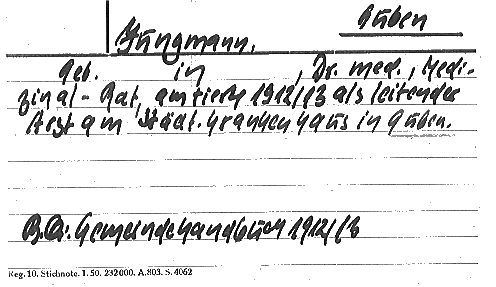 Guben
Jungmann.
Geb. in , Dr. med., Medi-
zinal-Rat, amtierte 1912/13 als leitender
Arzt am Städt. Krankenhaus in Guben.
B.Qu: Gemeindehandbuch 1912/13
Reg. 10. Stichnote. 1. 50. 232000. A.803. S. 4062